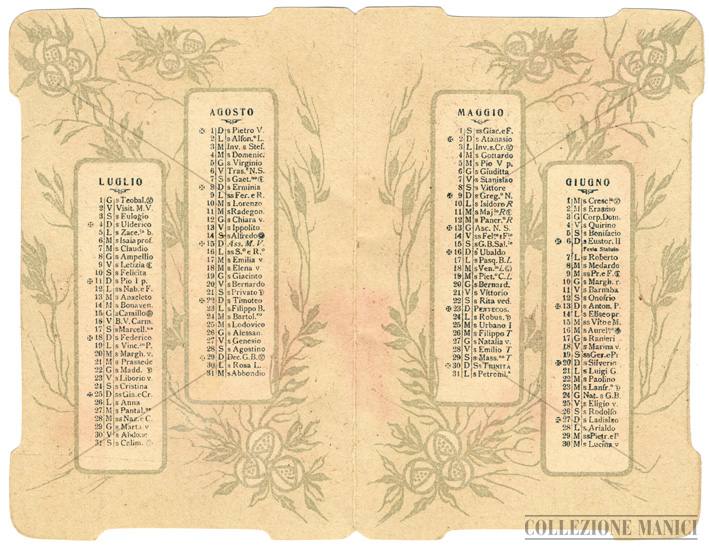 LUGLIO
1 G s Teobal.
2 V Visit. M.V.
3 S s Eulogio
✠ 4 D s Ulderico
5 L s Zacc.ª b.
6 M s Isaia prof.
7 M s Claudio
8 G s Ampellio
9 V s Letizia ☾
10 S s Felicita
✠ 11 D s Pio I p.
12 L ss Nab. e F.
13 M s Anacleto
14 M s Bonaven.
15 G s Camillo
16 V B.V. Carm.
17 S s Marcell.
✠ 18 D s Federico
19 L s Vinc. P.
20 M s Margh. v.
21 M s Prassede
22 G s Madd.
23 V s Liborio v.
24 S s Cristina
✠ 25 D ss Gia. e Cr.
26 L s Anna
27 M s Pantal.
28 M ss Naz. e C.
29 G s Marta v.
30 V s Abdon
31 S s Calim.
AGOSTO
✠ 1 D s Pietro V.
2 L s Alfon.º L.
3 M Inv. s Stef.
4 M s Domenic.
5 G s Virginio
6 V Tras.º N.S.
7 S s Gaet.
✠ 8 D s Erminia
9 L ss Fer. e R.
10 M s Lorenzo
11 M s Radegon.
12 G s Chiara v.
13 V s Ippolito
14 S s Alfredo
✠ 15 D Ass. M. V.
16 L ss S.º e R.º
17 M s Emilia v.
18 M s Elena v.
19 G s Giacinto
20 V s Bernardo
21 S s Privato
✠ 22 D s Timoteo
23 L s Filippo B.
24 M s Bartol.
25 M s Lodovico
26 G s Alessan.
27 V s Genesio
28 S s Agostino
✠ 29 D Dec. G.B.
30 L s Rosa L.
31 M s Abbondio
MAGGIO
1 S ss Giac. e F.
✠ 2 D s Atanasio
3 L Inv. s. Cr.
4 M s Gottardo
5 M s Pio V p.
6 G s Giuditta
7 V s Stanislao
8 S s Vittore
✠ 9 D s Greg.º N.
10 L s Isidoro R
11 M s Maj. R
12 M s Pancr.º R
✠ 13 G Asc. N. S.
14 V ss Fel. e F.
15 S s G.B. Sal.
✠ 16 D s Ubaldo
17 L s Pasq. B. L
18 M s Ven. L
19 M s Piet.º C. L
20 G s Bernard.
21 V s Vittorio
22 S s Rita ved.
✠ 23 D PENTECOS.
24 L s Robus.
25 M s Urbano I
26 M s Filippo T
27 G s Natalia v.
28 V s Emilio T
29 S s Mass. T
✠ 30 D ss TRINITÀ
31 L s Petronil.ª
GIUGNO
1 M s Cresc.
2 M s Erasmo
3 G Corp. Dom.
4 V s Quirino
5 S s Bonifacio
✠ 6 D s Eustor. II
Festa Statuto
7 L s Roberto
8 M s Medardo
9 M ss Pr. e F. ☾
10 G s Margh. r.
11 V s Barnaba
12 S s Onofrio
✠ 13 D s Anton. P.
14 L s Eliseo pr.
15 M ss Vito e M.
16 M s Aurel.
17 G s Ranieri
18 V s Marina v.
19 S ss Ger. e Pr
✠ 20 D s Silverio
21 L s Luigi G.
22 M s Paolino
23 M s Lanfr.º
24 G Nat. s G.B.
25 V s Eligio v.
26 S s Rodolfo
✠ 27 D s Ladislao
28 L s Arialdo
29 M ss Pietr. e P
30 M s Lucina v
COLLEZIONE MANICI